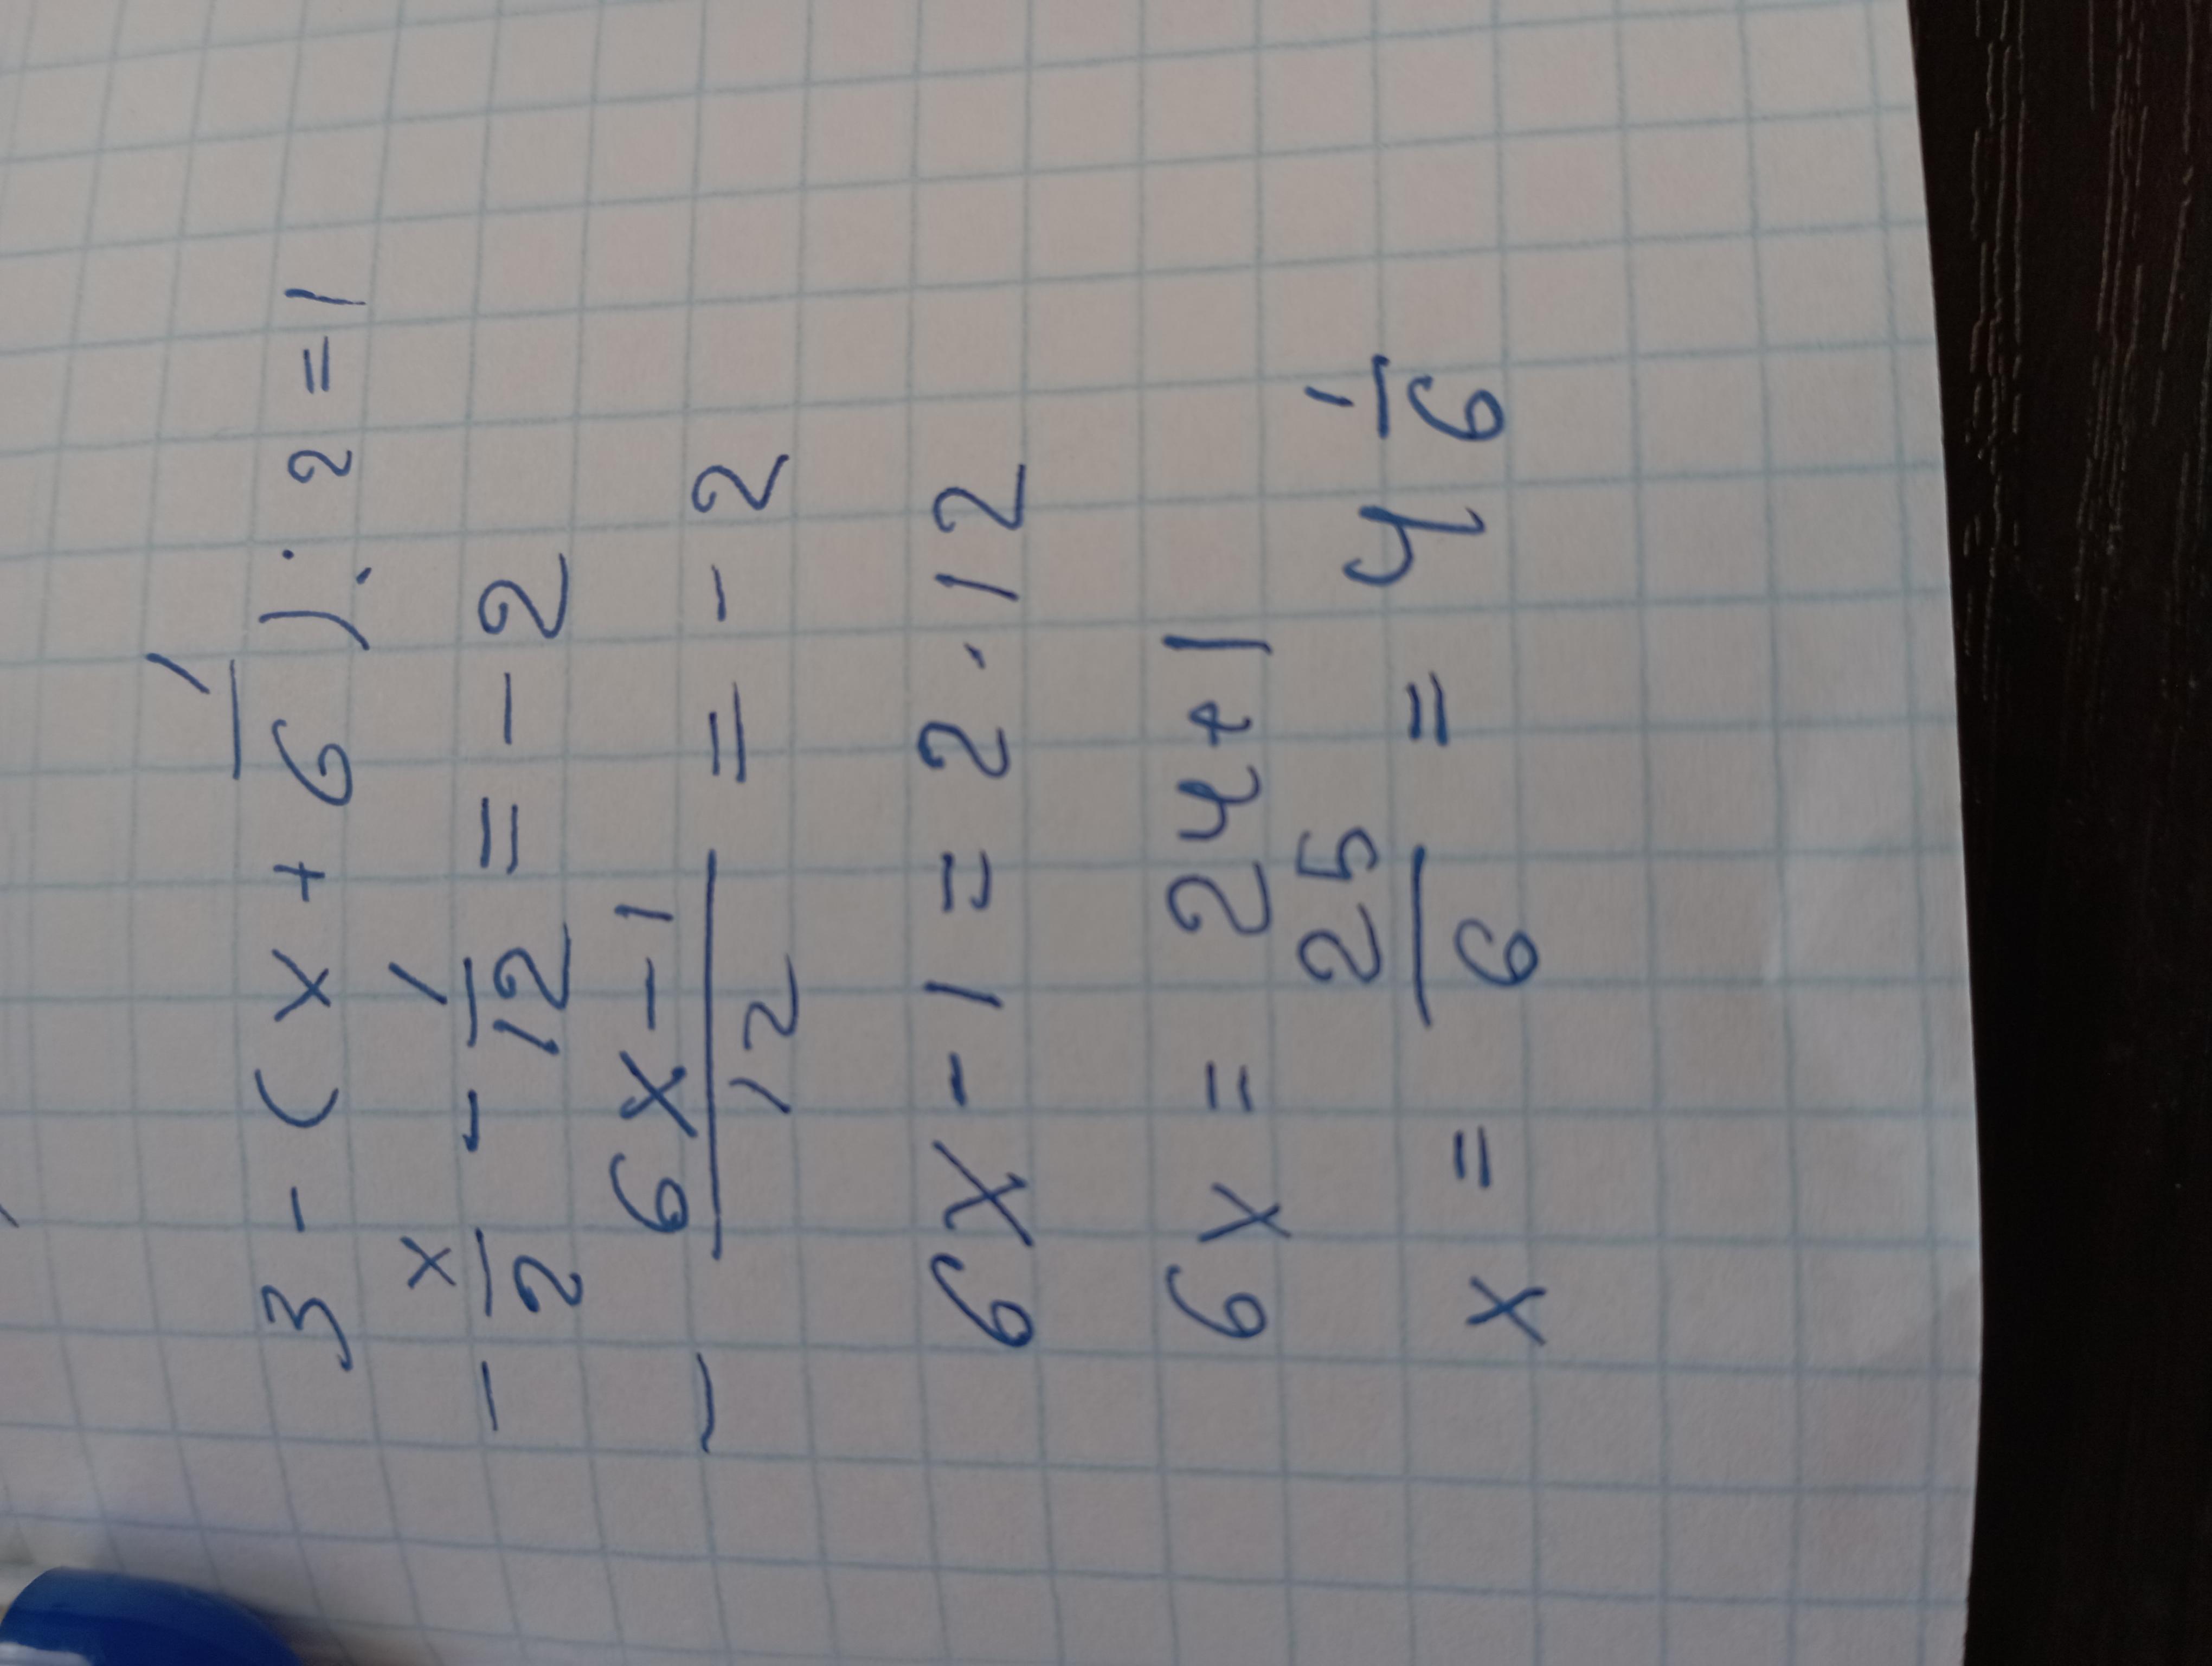 3 - (x + 1/6) : 2 = 1
- x/2 - 1/12 = - 2
- 6x - 1/12 = - 2
6x - 1 = 2 · 12
6x = 24 + 1
x = 25/6 = 4 1/6